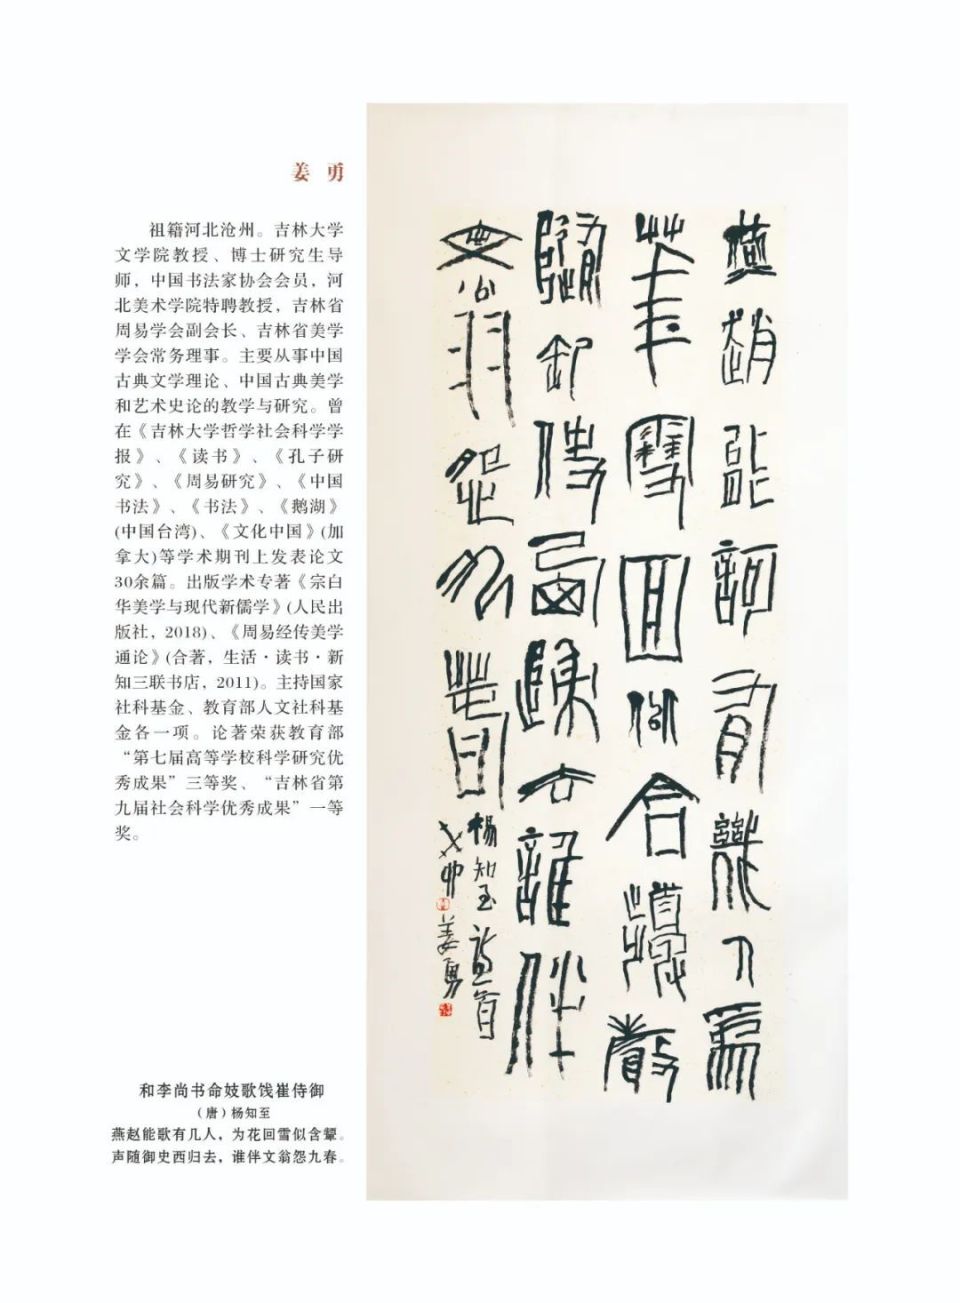 姜 勇
祖籍河北沧州。吉林大学
文学院教授、博士研究生导
师，中国书法家协会会员，河
北美术学院特聘教授，吉林省
周易学会副会长、吉林省美学
学会常务理事。主要从事中国
古典文学理论、中国古典美学
和艺术史论的教学与研究。曾
在《吉林大学哲学社会科学学
报》、《读书》、《孔子研
究》、《周易研究》、《中国
书法》、《书法》、《鹅湖》
(中国台湾)、《文化中国》(加
拿大)等学术期刊上发表论文
30余篇。出版学术专著《宗白
华美学与现代新儒学》(人民出
版社，2018)、《周易经传美学
通论》(合著，生活·读书·新
知三联书店，2011)。主持国家
社科基金、教育部人文社科基
金各一项。论著荣获教育部
“第七届高等学校科学研究优
秀成果”三等奖、“吉林省第
九届社会科学优秀成果”一等
奖。
燕趙能歌有幾人為
華雪回似含嚬聲
隨御史西歸去誰伴
文翁怨九春
楊知至詩一首
癸卯姜勇
和李尚书命妓歌饯崔侍御
（唐）杨知至
燕赵能歌有几人，为花回雪似含颦。
声随御史西归去，谁伴文翁怨九春。